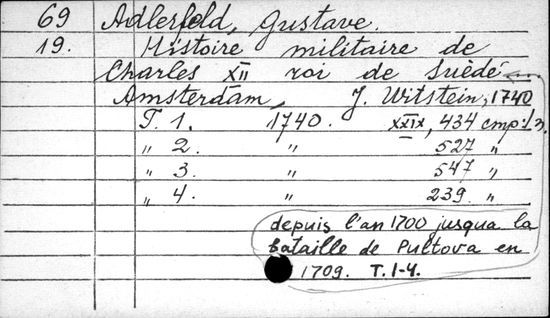 69 Adlerfeld, Gustave.
19. Histoire militaire de
Charles XII roi de Suède
Amsterdam, J. Witstein, 1740
T. 1. 1740. XXIX, 434 cmp:/2.
„ 2. „ 527 „
„ 3. „ 547 „
„ 4. „ 239. „
depuis l'an 1700 jusqua la
bataille de Pultova en
1709. T. 1-4.